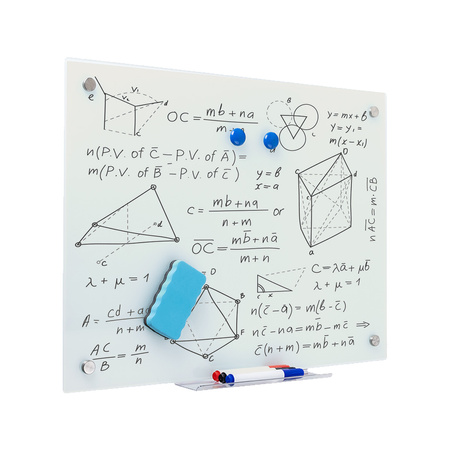 e V₁ V₂ d c
OC = mb + na / m + n
B C
y = mx + b
y = y₁ =
m(x - x₁)
n(P.V. of C̅ - P.V. of A̅) =
m(P.V. of B̅ - P.V. of c̅)
y = b
x = a
c = mb + na / n + m or
O̅C̅ = mb̅ + na̅ / m + n
O c d a
n A̅C̅ = m·C̅B̅
d c
λ + μ = 1
C = λa̅ + μb̅
λ + μ = 1
r x
A = cd + a / n + m
D B F C
n(c̅ - a) = m(b - c̅)
nc̅ - na = mb - mc̅ ⇒
c̅(n + m) = mb̅ + na̅
AC / B = m / n